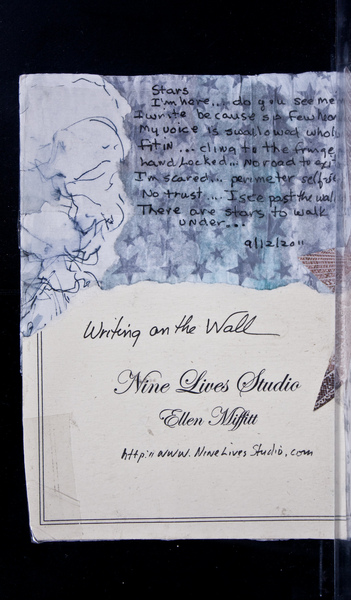 Stars
I'm here... do you see me
I write because so few hear
My voice is swallowed whole
Fit in ... cling to the fringe
hand locked... No road to exit
I'm scared.... perimeter
No trust.... I see past the wall
There are stars to walk
under...
9/12/2011
Writing on the Wall
Nine Lives Studio
Ellen Miffitt
http://www.NineLivesStudio.com